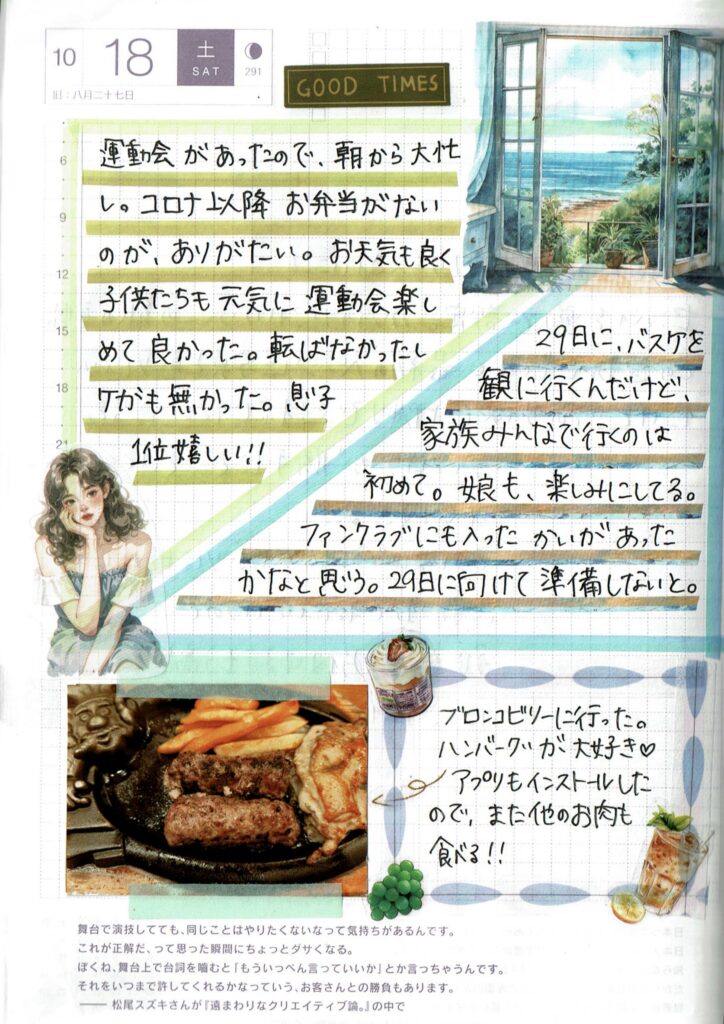 10 18 土 SAT 291
旧:八月二十七日
GOOD TIMES
6
9
12
15
18
21
運動会があったので、朝から大忙
し。コロナ以降 お弁当がない
のが、ありがたい。お天気も良く
子供たちも元気に運動会楽し
めて良かった。転ばなかったし
ケガも無かった。息子
1位嬉しい!!
29日に、バスケを
観に行くんだけど、
家族みんなで行くのは
初めて。娘も、楽しみにしてる。
ファンクラブにも入ったかいがあった
かなと思う。29日に向けて準備しないと。
ブロンコビリーに行った。
ハンバーグが大好き♡
アプリもインストールした
ので、また他のお肉も
食べる!!
舞台で演技してても、同じことはやりたくないなって気持ちがあるんです。
これが正解だ、って思った瞬間にちょっとダサくなる。
ぼくね、舞台上で台詞を噛むと「もういっぺん言っていいか」とか言っちゃうんです。
それをいつまで許してくれるかなっていう、お客さんとの勝負もあります。
―― 松尾スズキさんが『遠まわりなクリエイティブ論。』の中で